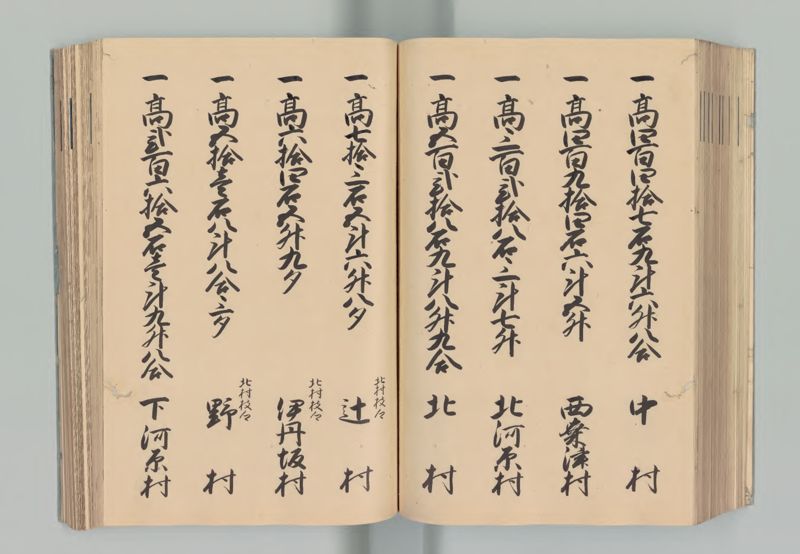 一 高四百四拾七石九斗六升八合 中村
一 高四百九拾四石六斗五升 西桑津村
一 高三百弐拾八石三斗七升 北河原村
一 高五百弐拾八石九斗八升九合 北村
一 高七拾三石五斗六升八夕 北村枝々 辻村
一 高六拾四石五升九夕 北村枝々 伊丹坂村
一 高五拾壱石八斗八合三夕 北村枝々 野村
一 高弐百六拾五石壱斗九升八合 下河原村